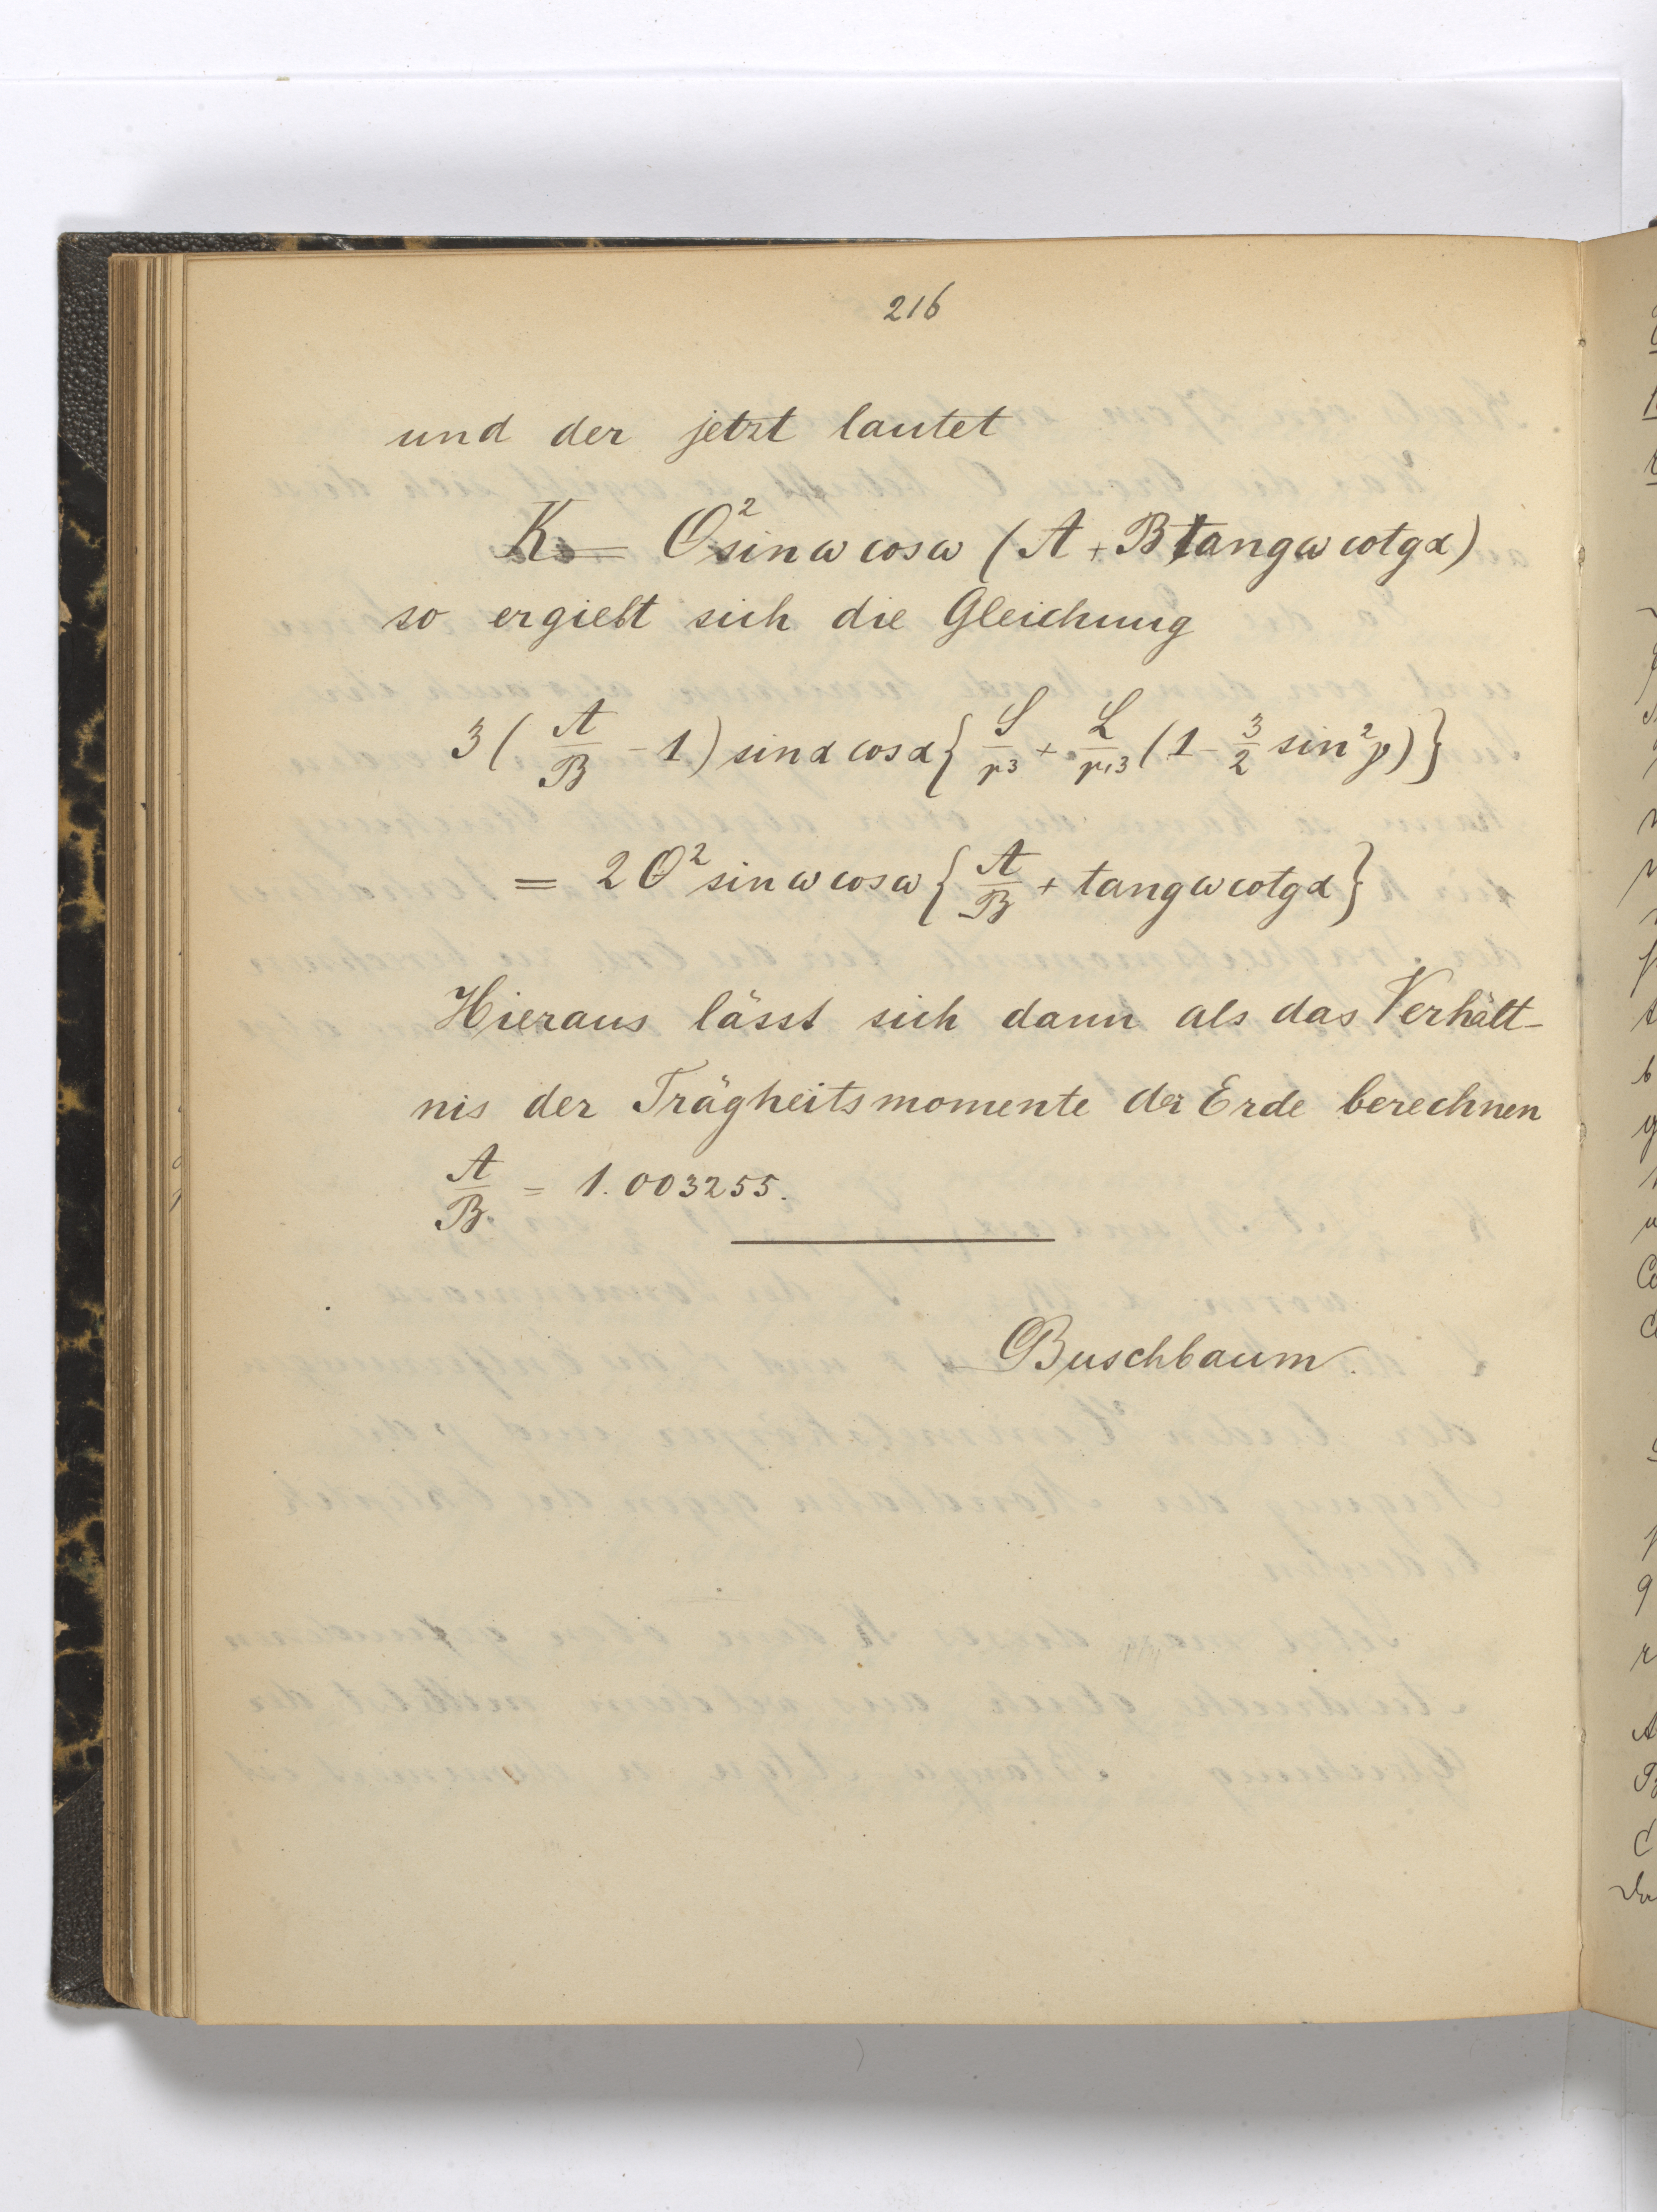 216
und der jetzt lautet
K = O² sin ω cos ω (A + B tang ω cotg α)
so ergiebt sich die Gleichung
3 ( A/B - 1 ) sin α cos α { S/r³ + L/r'³ (1 - 3/2 sin² γ) }
= 2 O² sin ω cos ω { A/B + tang ω cotg α }
Hieraus lässt sich dann als das Verhält-
nis der Trägheitsmomente der Erde berechnen
A/B = 1.003255.
Buschbaum.